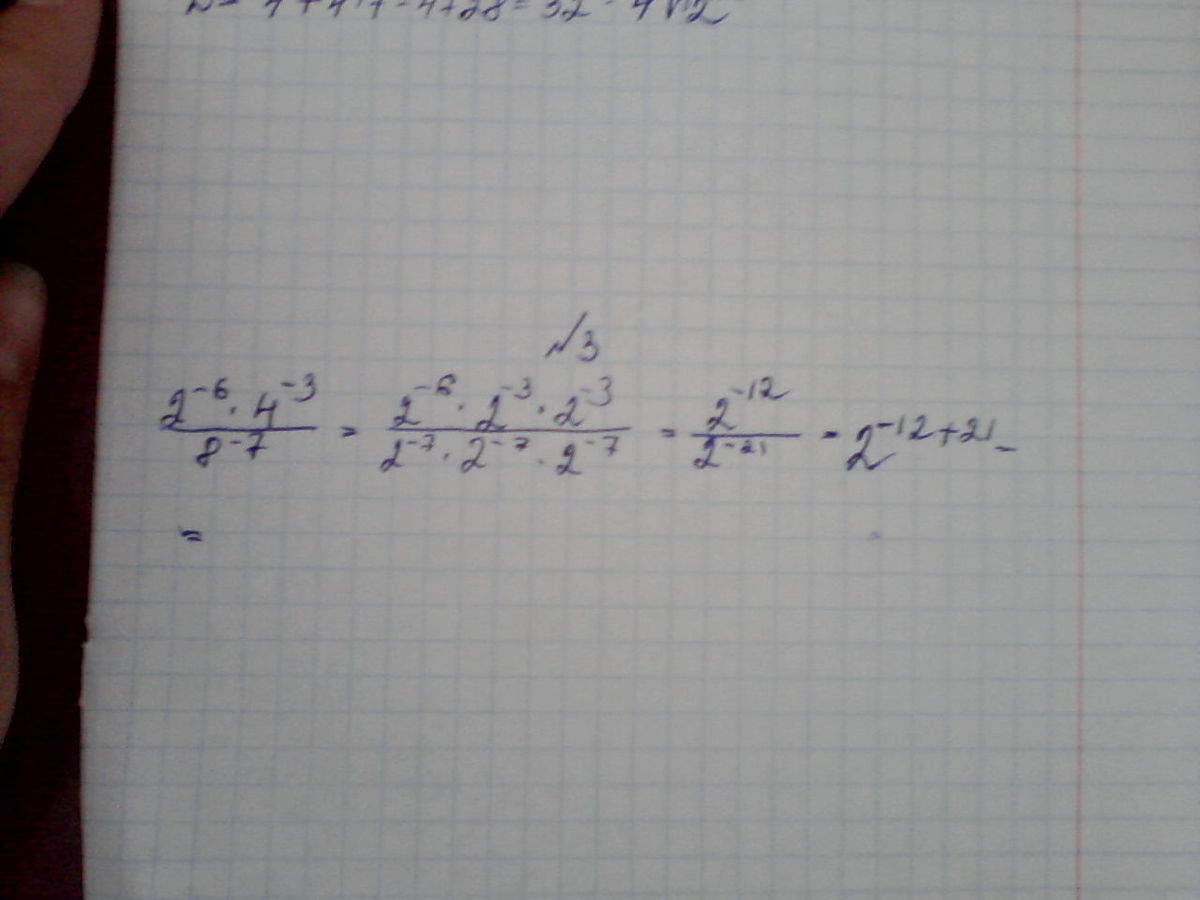 = 32 = 4√2
№3
2⁻⁶ · 4⁻³ / 8⁻⁷ = 2⁻⁶ · 2⁻³ · 2⁻³ / 2⁻⁷ · 2⁻⁷ · 2⁻⁷ = 2⁻¹² / 2⁻²¹ = 2⁻¹²⁺²¹ =
=